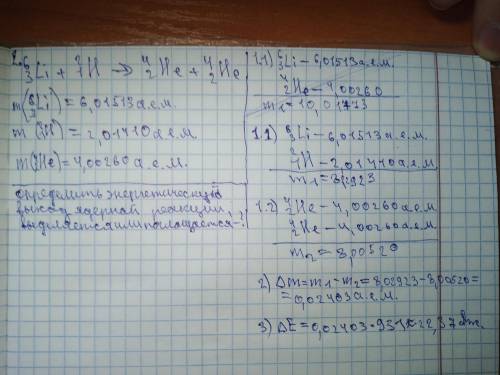 2. ⁶₃Li + ²₁H → ⁴₂He + ⁴₂He
m(⁶₃Li) = 6,01513 а.е.м.
m(²₁H) = 2,01410 а.е.м.
m(⁴₂He) = 4,00260 а.е.м.
определить энергетический
выход ядерной реакции,
выделяется или поглощается - ?
1.1) ⁶₃Li - 6,01513 а.е.м.
⁴₂He - 4,00260
m₁ = 10,01773
1.1) ⁶₃Li - 6,01513 а.е.м.
²₁H - 2,01410 а.е.м.
m₁ = 8,02923
1.2) ⁴₂He - 4,00260 а.е.м.
⁴₂He - 4,00260 а.е.м.
m₂ = 8,00520
2) Δm = m₁ - m₂ = 8,02923 - 8,00520 =
= 0,02403 а.е.м.
3) ΔE = 0,02403 · 931 = 22,37